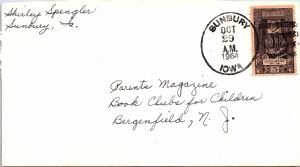 Shirley Spengler
Sunbury, Ia.
SUNBURY
OCT
29
A.M.
1964
IOWA
Parents Magazine
Book Clubs for Children
Bergenfield, N. J.